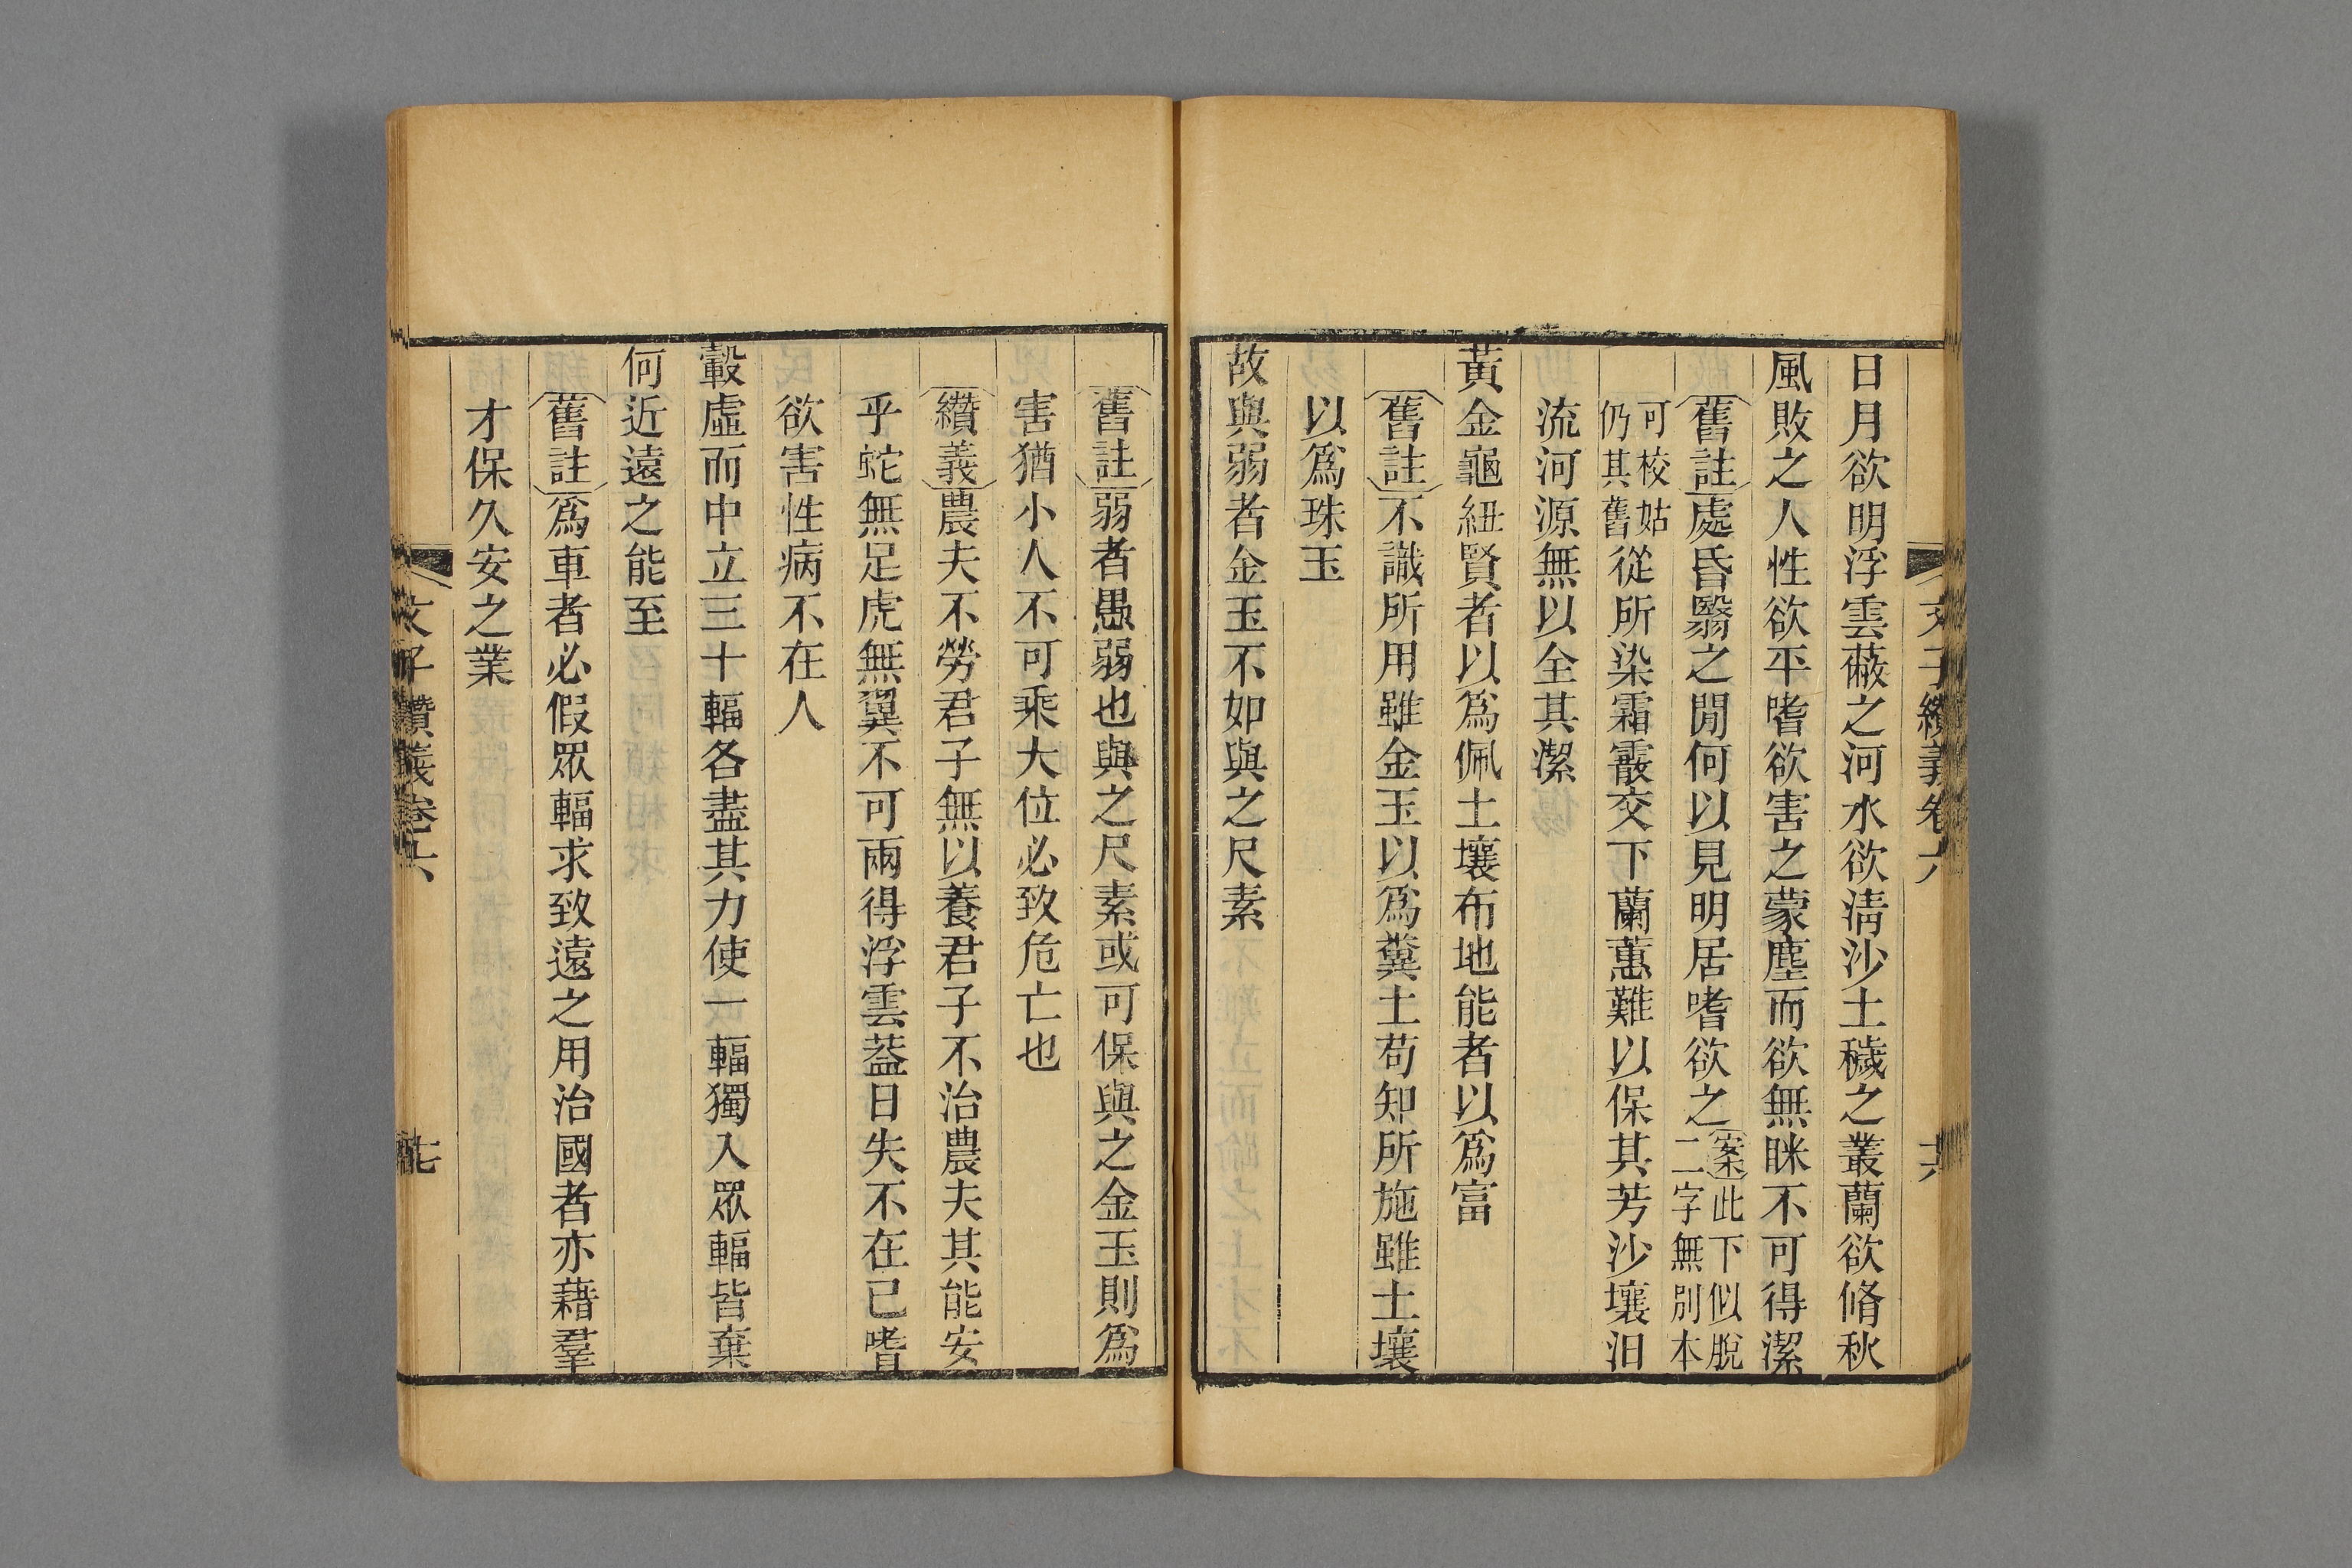 文子纘義卷六
日月欲明浮雲蔽之河水欲淸沙土穢之叢蘭欲脩秋
風敗之人性欲平嗜欲害之蒙塵而欲無眯不可得潔
舊註處昏翳之閒何以見明居嗜欲之案此下似脫二字無別本
可校姑仍其舊從所染霜霰交下蘭蕙難以保其芳沙壤汨
流河源無以全其潔
黃金龜紐賢者以爲佩土壤布地能者以爲富
舊註不識所用雖金玉以爲糞土苟知所施雖土壤
以爲珠玉
故與弱者金玉不如與之尺素
舊註弱者愚弱也與之尺素或可保與之金玉則爲
害猶小人不可乘大位必致危亡也
纘義農夫不勞君子無以養君子不治農夫其能安
乎蛇無足虎無翼不可兩得浮雲葢日失不在己嗜
欲害性病不在人
轂虛而中立三十輻各盡其力使一輻獨入眾輻皆棄
何近遠之能至
舊註爲車者必假眾輻求致遠之用治國者亦藉羣
才保久安之業
文子纘義卷六